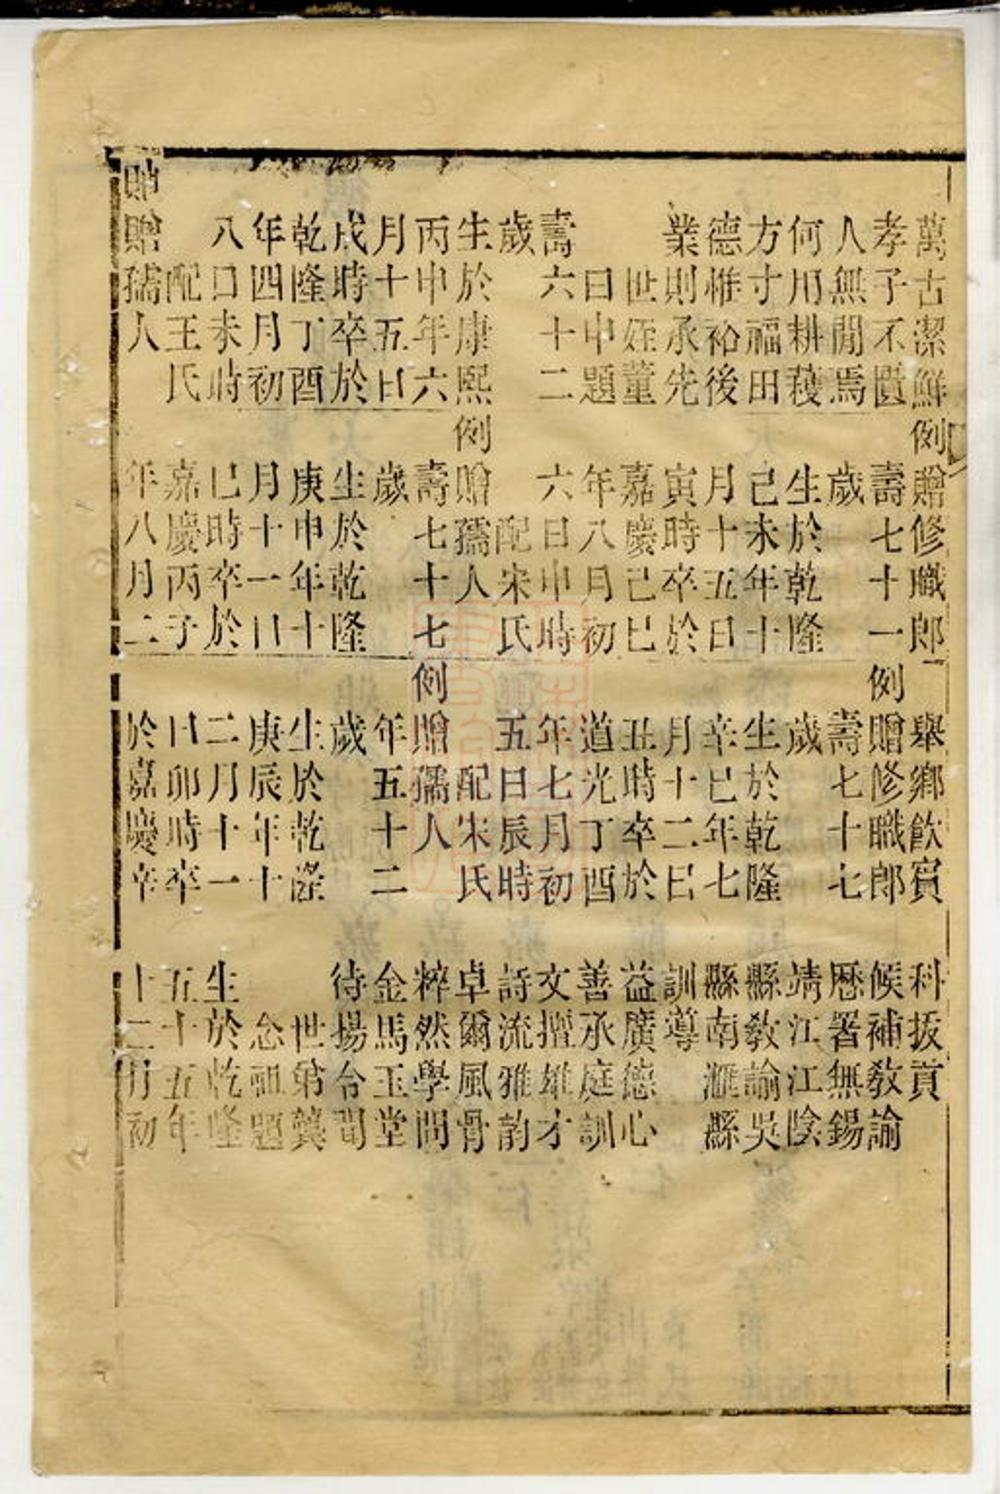 萬古潔鮮
孝子不匱
人無閒焉
何用耕穫
方寸福田
德惟裕後
業則承先
世姪董
曰申題
壽六十二
歲
生於康熙
丙申年六
月十五日
戌時卒於
乾隆丁酉
年四月初
八日未時
配王氏
贈孺人
例贈修職郎
壽七十一
歲
生於乾隆
己未年十
月十五日
寅時卒於
嘉慶己巳
年八月初
六日申時
配宋氏
例贈孺人
壽七十七
歲
生於乾隆
庚申年十
月十一日
巳時卒於
嘉慶丙子
年八月二
舉鄉飲賓
例贈修職郎
壽七十七
歲
生於乾隆
辛巳年七
月十二日
丑時卒於
道光丁酉
年七月初
五日辰時
配宋氏
例贈孺人
年五十二
歲
生於乾隆
庚辰年十
二月十一
日卯時卒
於嘉慶辛
科拔貢
候補敎諭
歷署無錫
靖江江陰
縣敎諭吳
縣南滙縣
訓導
益廣德心
善承庭訓
文擅雄才
詩流雅韵
卓爾風骨
粹然學問
金馬玉堂
待揚令聞
世弟龔
念祖題
生於乾隆
五十五年
十二月初